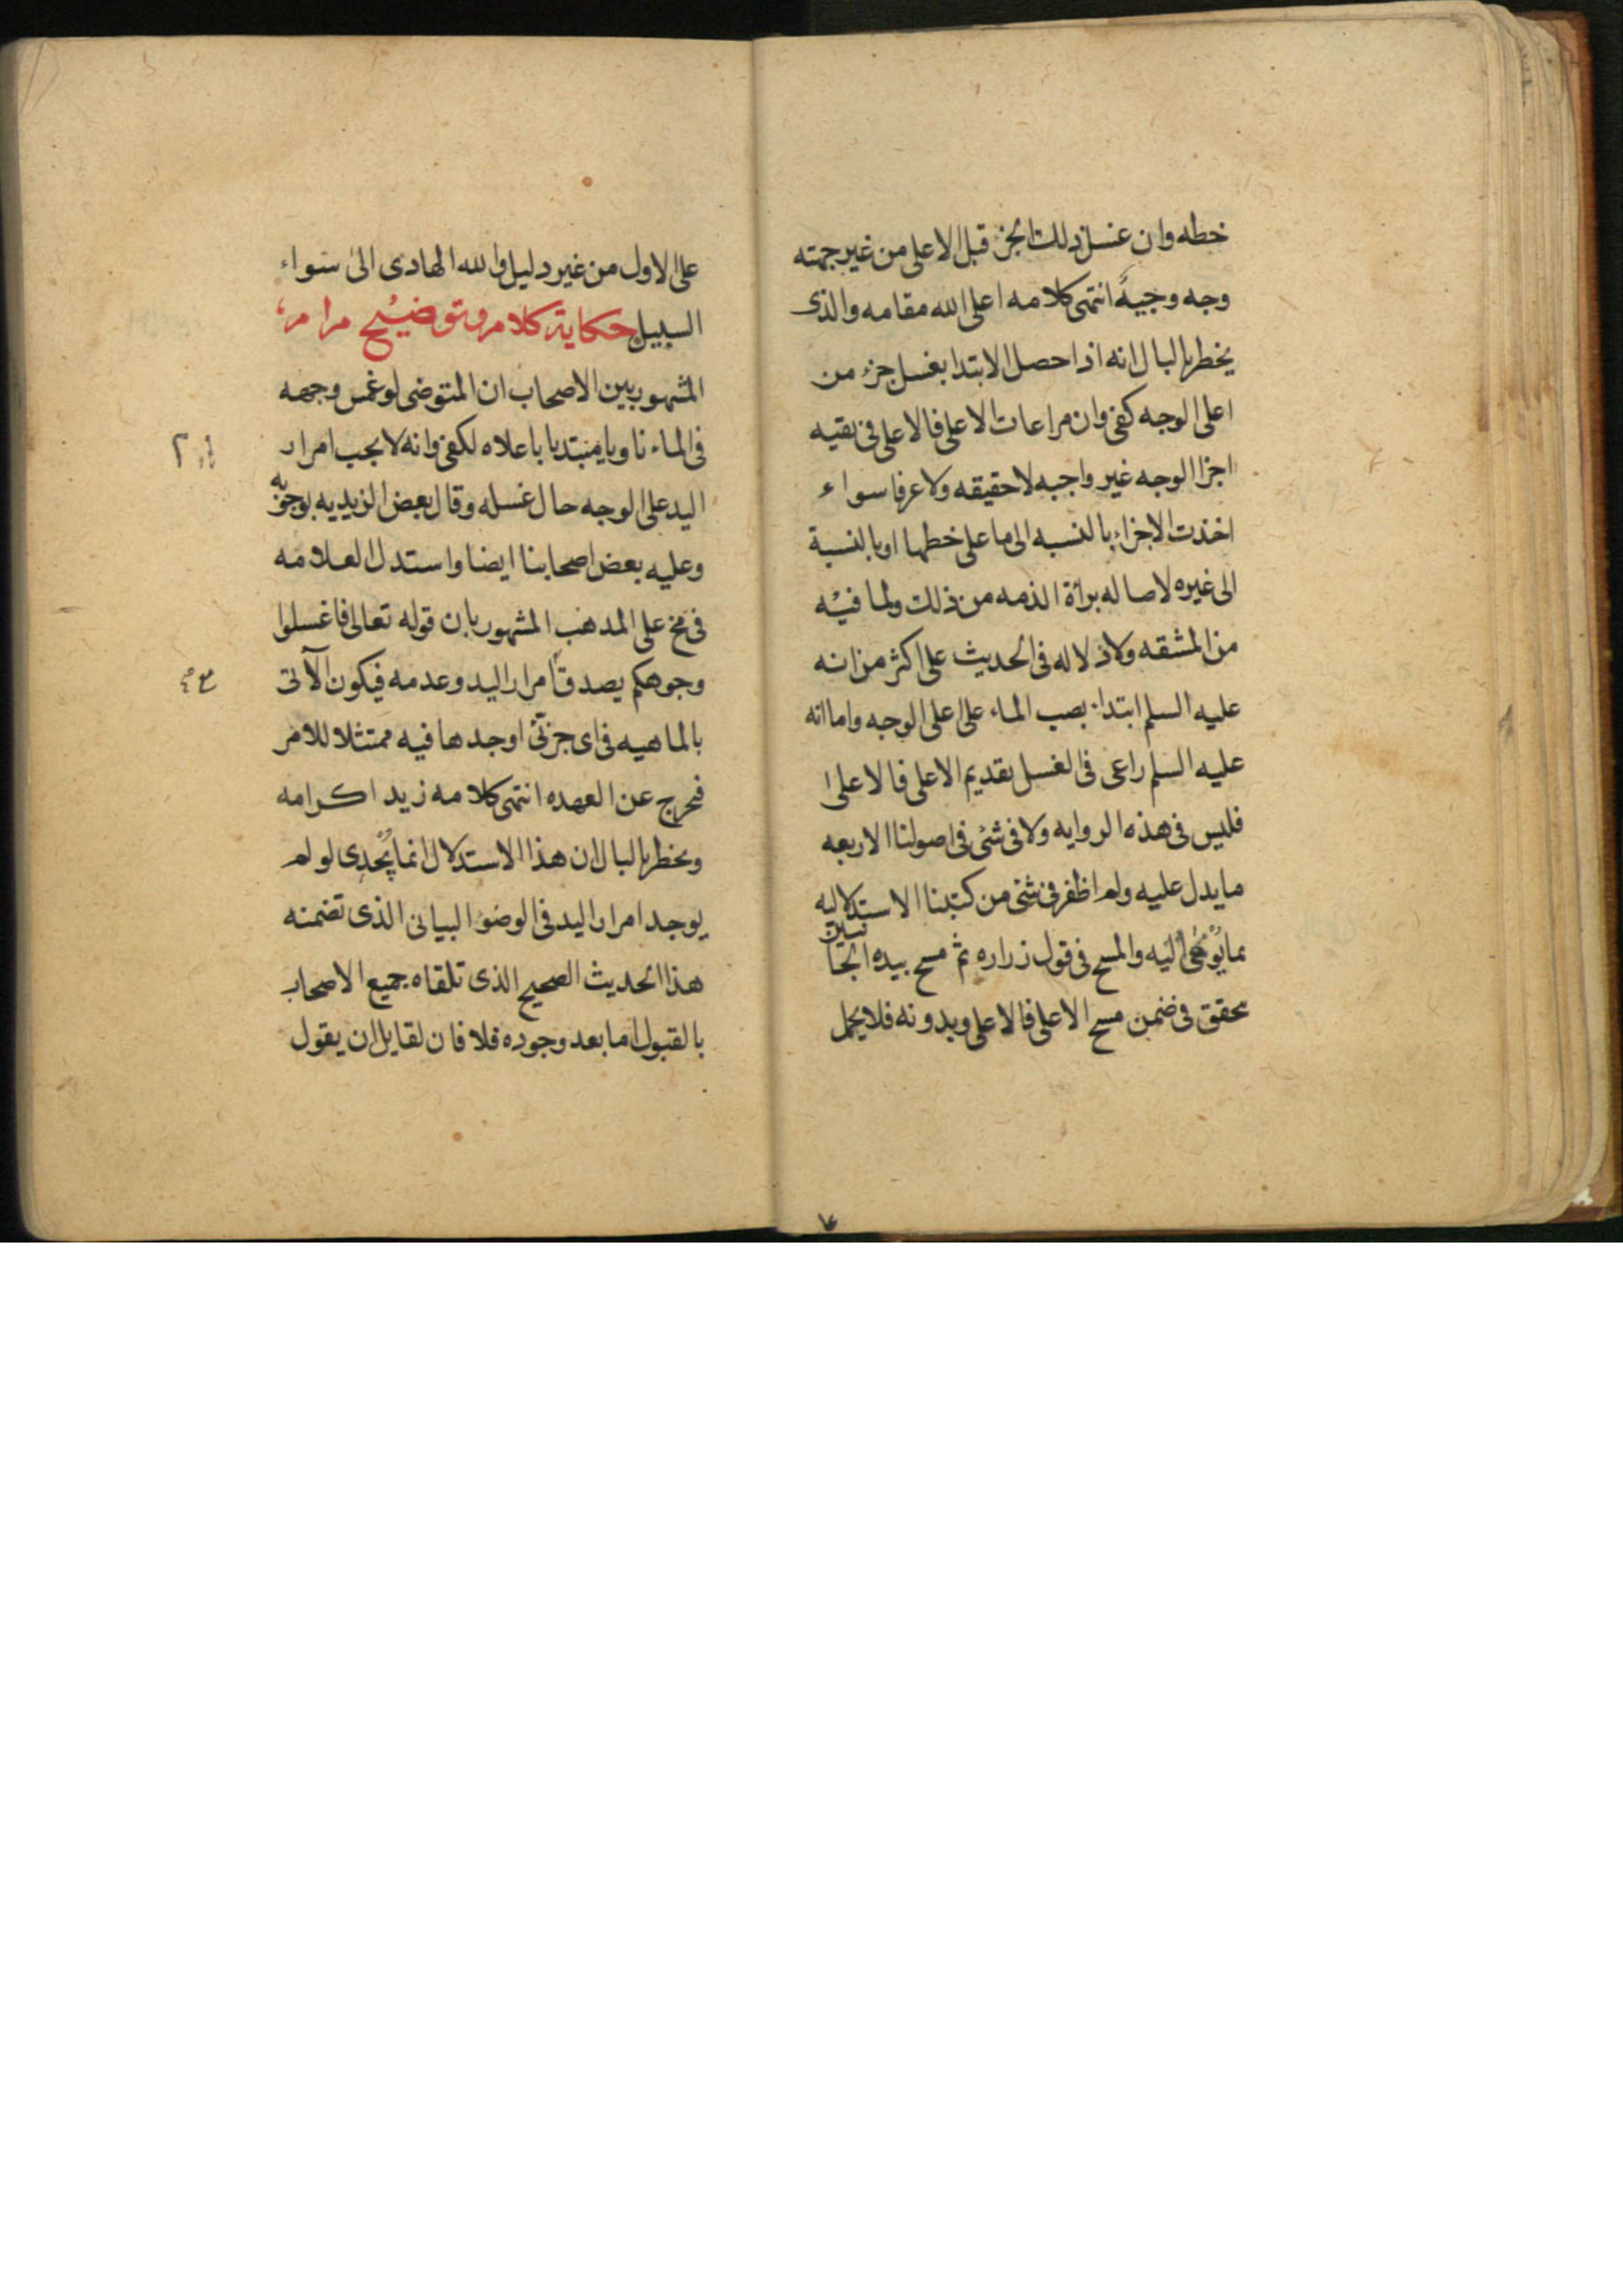 خطه وان غسل ذلك الجزء قبل الاعلى من غير جهته
وجه وجيه انتهى كلامه اعلى الله مقامه والذى
يخطر بالبال انه اذا حصل الابتدا بغسل جزء من
اعلى الوجه كفى وان مراعات الاعلى فالاعلى فى بقيه
اجزا الوجه غير واجبه لا حقيقه ولا عرفا سواء
اخذت الاجزاء بالنسبه الى ما على خطها او بالنسبة
الى غيره لاصاله برأة الذمه من ذلك ولما فيه
من المشقه ولا دلاله فى الحديث على اكثر من انه
عليه السلم ابتداء بصب الماء على اعلى الوجه واما انه
عليه السلم راعى فى الغسل بقديم الاعلى فالاعلى
فليس فى هذه الروايه ولا فى شئ فى اصولنا الاربعه
ما يدل عليه ولم اظفر فى شئ من كتبنا الاستدلاليه
بما يؤمى اليه والمسح فى قول زراره ثم مسح بيده الجانبين
محقق فى ضمن مسح الاعلى فالاعلى وبدونه فلا يحمل
على الاول من غير دليل والله الهادى الى سواء
السبيل حكاية كلام وتوضيح مرام
المشهور بين الاصحاب ان المتوضى لو غمس وجهه
فى الماء ناويا مبتديا باعلاه لكفى وانه لا يجب امرار
اليد على الوجه حال غسله وقال بعض الزيديه بوجوبه
وعليه بعض اصحابنا ايضا واستدل العلامه
فى مخ على المذهب المشهور بان قوله تعالى فاغسلوا
وجوهكم يصدق امرار اليد وعدمه فيكون الآتى
بالماهيه فى اى جزئى اوجدها فيه ممتثلا للامر
فخرج عن العهده انتهى كلامه زيد اكرامه
ويخطر بالبال ان هذا الاستدلال انما يُجدى لو لم
يوجد امرار اليد فى الوضوء البيانى الذى تضمنه
هذا الحديث الصحيح الذى تلقاه جميع الاصحاب
بالقبول اما بعد وجوده فلا فان لقايل ان يقول